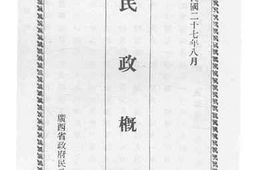 國二十七年八月
民政概
廣西省政府民